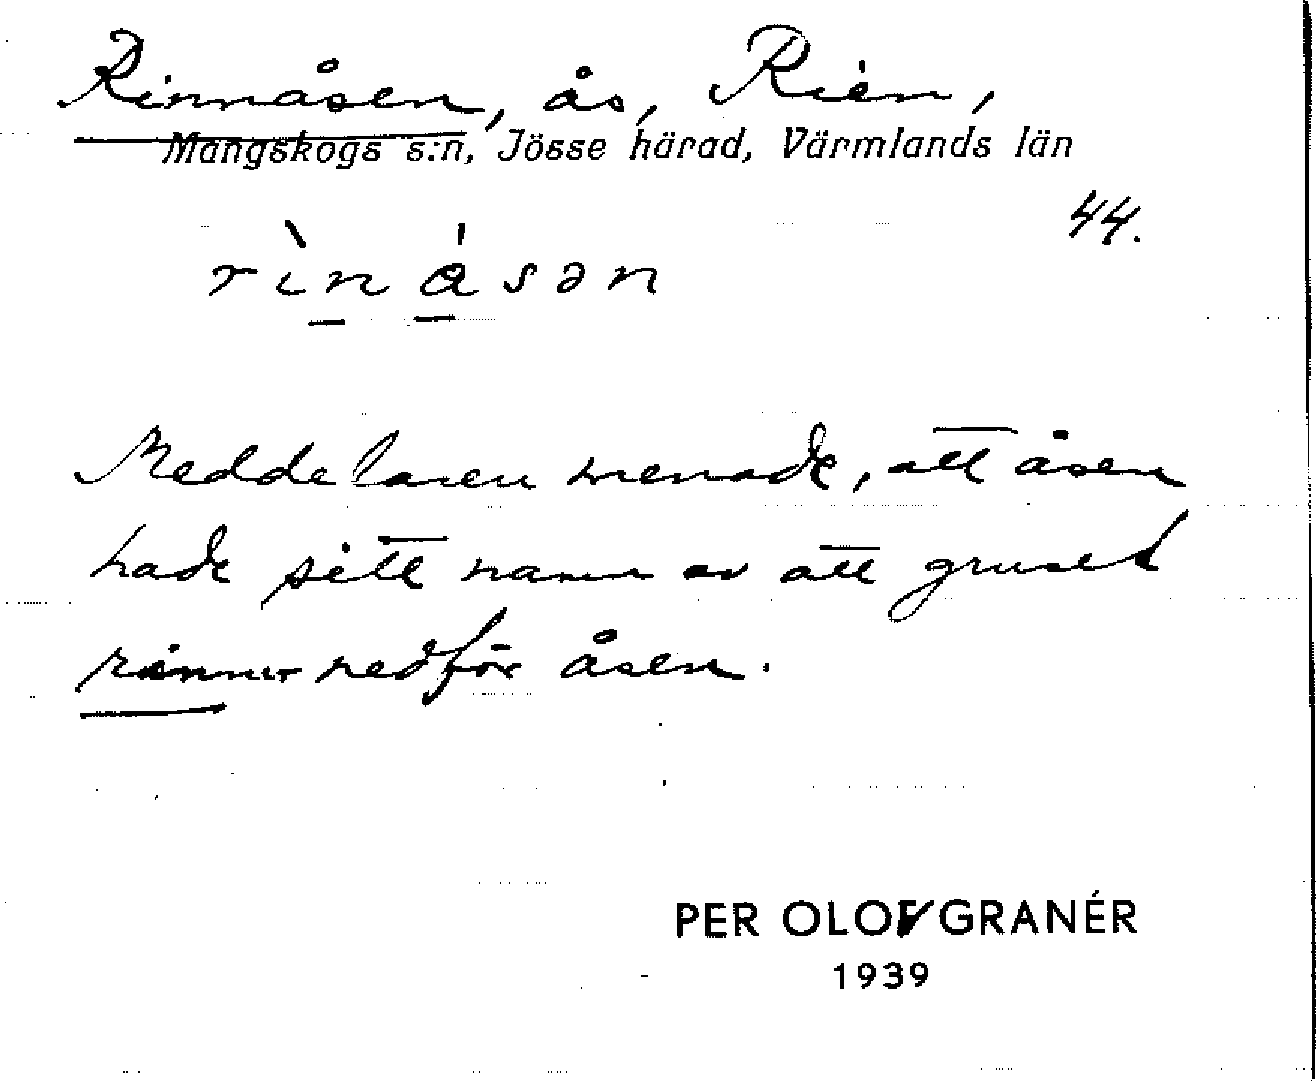 Rinnåsen, ås, Rien,
Mangskogs s:n, Jösse härad, Värmlands län
44.
rı̀nåsən
Meddelaren menade, att åsen
hade sitt namn av att gruset
rinner nedför åsen.
PER OLOV GRANÉR
1939